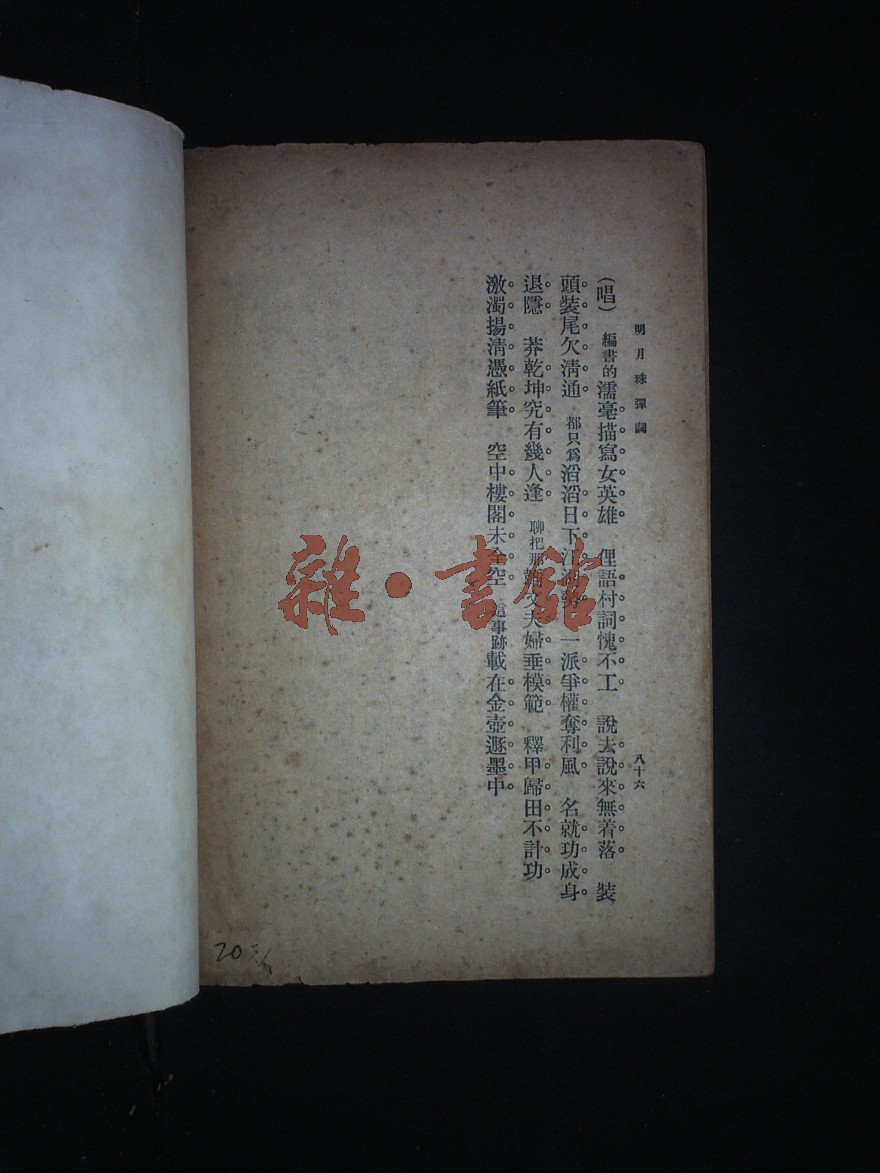 明月珠彈詞
八十六
（唱） 編書的濡毫描寫女英雄 俚語村詞愧不工 說去說來無着落 裝
頭裝尾欠淸通 都只爲滔滔日下江河勢 一派爭權奪利風 名就功成身
退隱 莽乾坤究有幾人逢 聊把那 夫婦垂模範 釋甲歸田不計功
激濁揚淸憑紙筆 空中樓閣未全空 這事跡載在金壺遯墨中
雜·書館
20